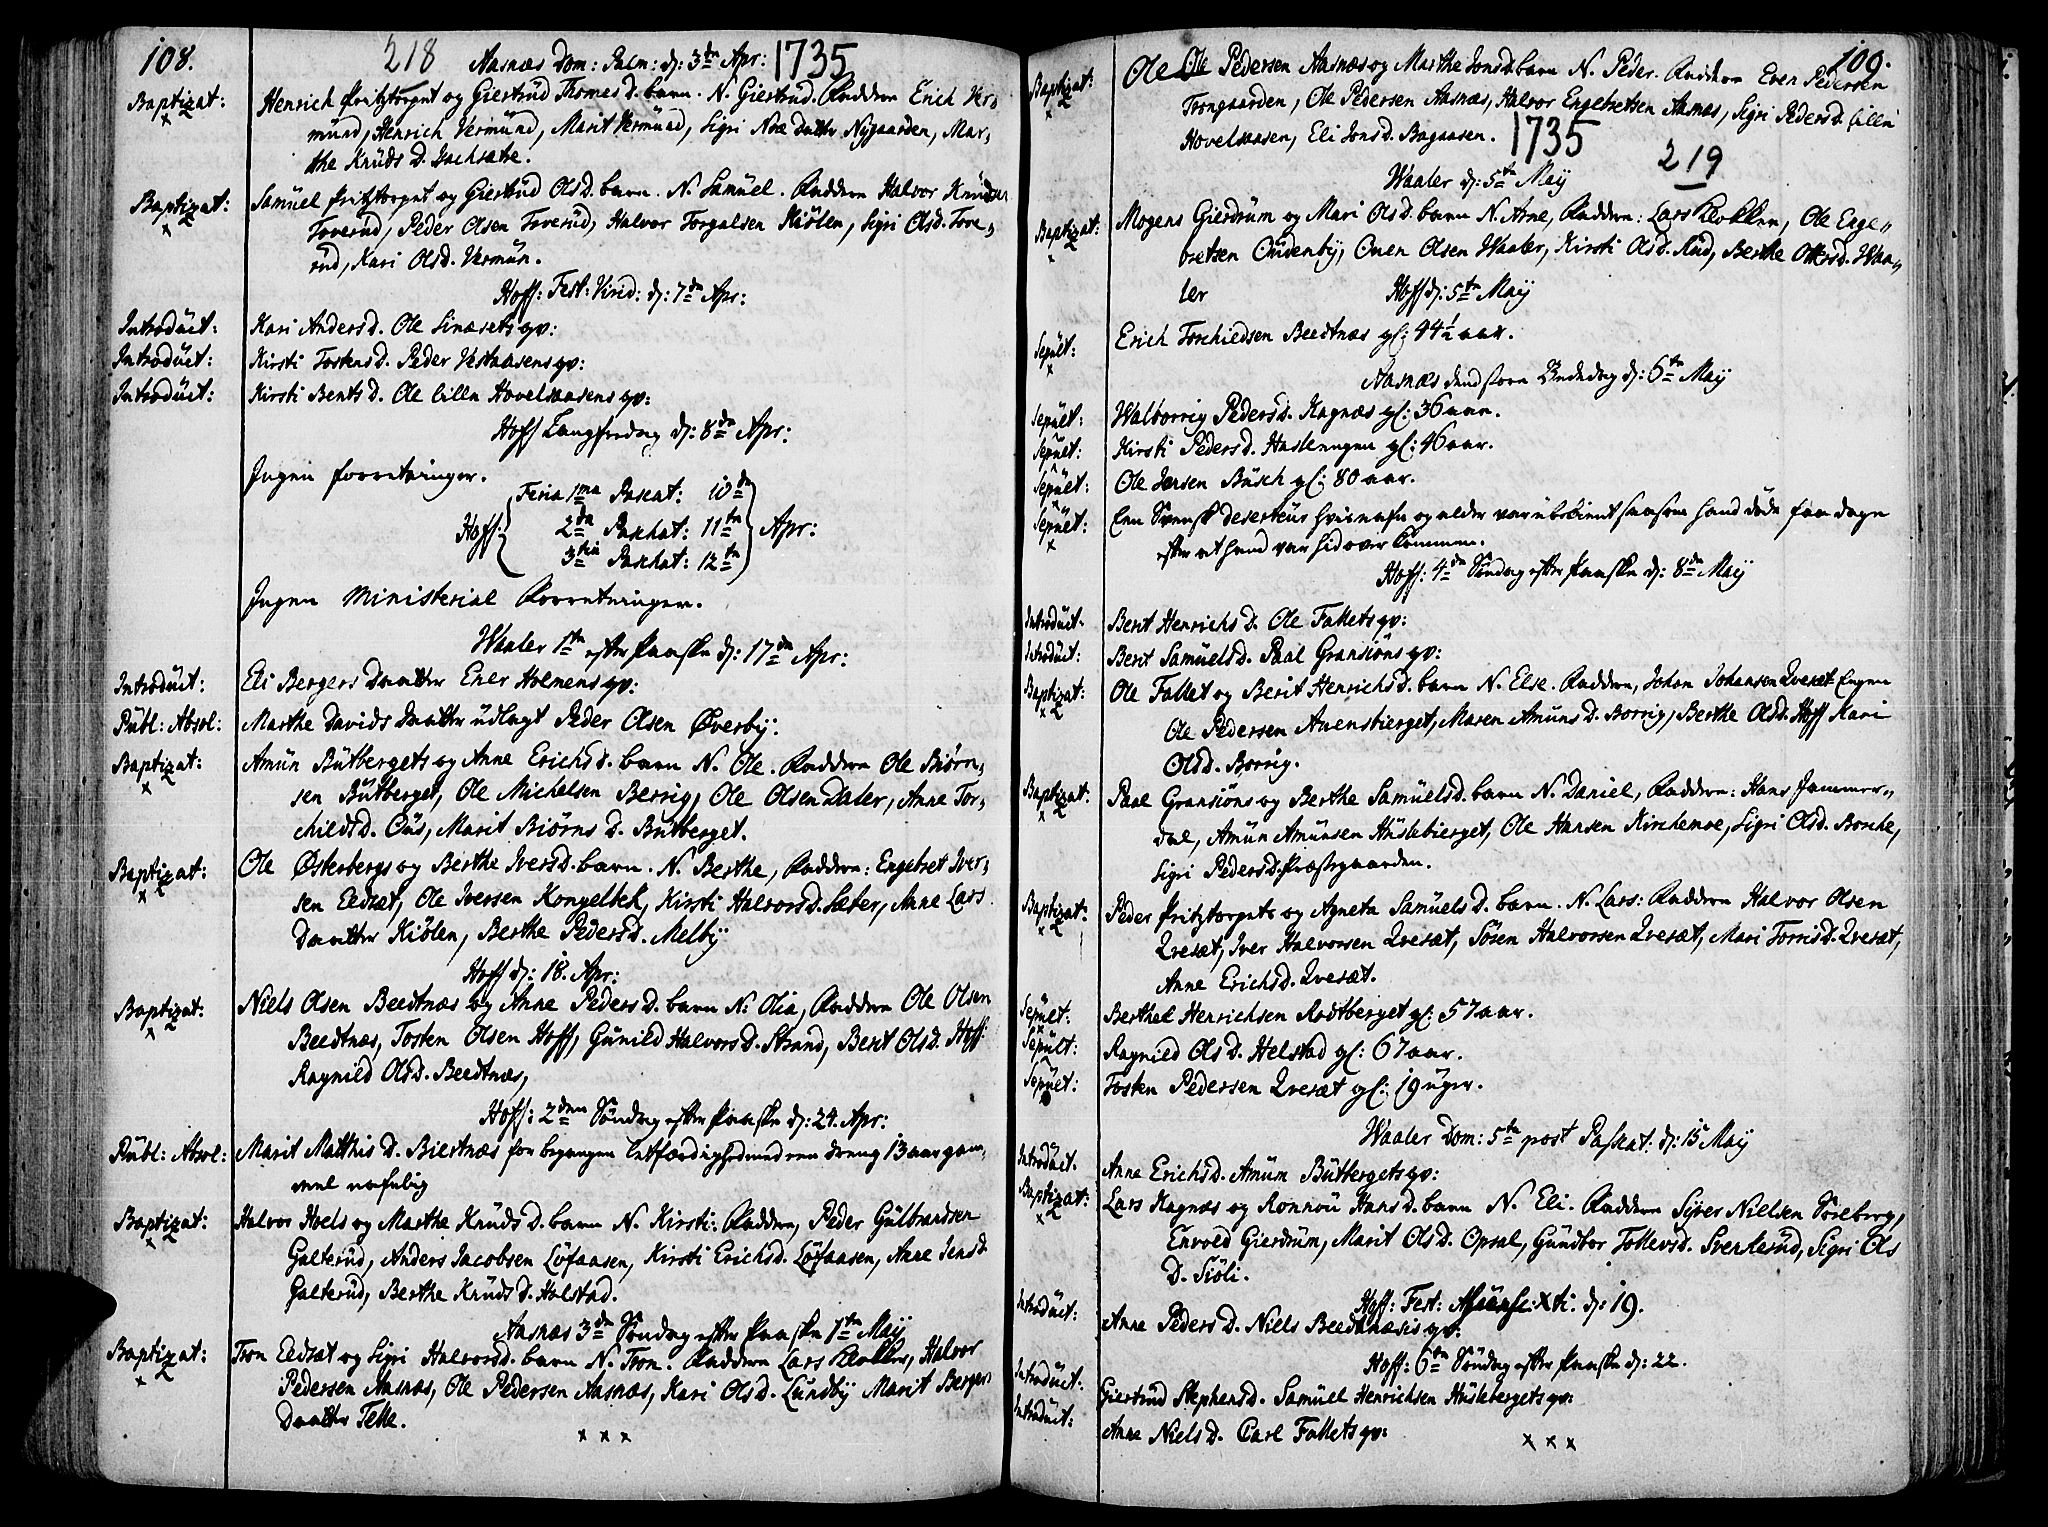 108.
218 Aasnæs Dom: Palm: d: 3de Apr: 1735
Baptizat: Henrich fritztorpet og Giertrud Thomes D. barn. N. Giertrud. Faddere Erich Ver„
mund, Henrich Vermund, Marit Vermund, Sigri Noæ datter Nygaarden, Mar„
the Knuds D. Jachsætre.
Baptizat: Samuel fritztorpet og Giertrud Olsd. barn. N. Samuel. Faddere Halvor Knudsen
Foverud, Peder Olsen Foverud, Halvor Torgalsen Kiölen, Sigri Olsd. Fove„
rud, Kari Olsd. Vermun.
Hoff: Fest: Virid: d: 7de Apr:
Introduct: Kari Andersd. Ole Sinæsets qv:
Introduct: Kirsti Tostensd. Peder Vestaasens qv:
Introduct: Kirsti Bents D. Ole lille Hovelsaasens qv:
Hoff Langfredag d: 8de Apr:
Ingen forretninger.
Hoff: Feria 1ma Pascat: 10de
2da Paschat: 11te Apr:
3tia Paschat: 12te
Ingen Ministerial Forretninger.
Waaler 1te efter Paaske d: 17de Apr:
Introduct: Eli Bergers Daatter Ener Holmens qv:
Publ: Absol: Marthe Davids Daatter udlagt Peder Olsen Øverby:
Baptizat: Amun Butbergets og Anne Erichsd. barn N. Ole. Faddere Ole Biörn„
sen Butberget, Ole Michelsen Berrig, Ole Olsen Daler, Anne Tor„
childsd. Ous, Marit Biörns D. Butberget.
Baptizat: Ole Østerbergs og Berthe Iversd. barn. N. Berthe, Faddere: Engebret Iver„
sen Eidsæt, Ole Iversen Kongelbek, Kirsti Halvorsd. Sæter, Anne Lars
Daatter Kiölen, Berthe Pedersd. Melby
Hoff d: 18. Apr:
Baptizat: Niels Olsen Beedtnæs og Anne Peders D. barn N. Olia, Faddere Ole Olsen
Beedtnæs, Tosten Olsen Hoff, Gunild Halvors D. Strand, Berit Olsd. Hoff
Ragnild Olsd. Beedtnæs,
Hoff: 2den Söndag efter Paaske d: 24. Apr:
Publ: Absol: Marit Matthis D. Biertnæs for begangen letfærdighed med en dreng 13 aar gam„
mel
Baptizat: Halvor Hoels og Marthe Knuds D. barn N. Kirsti: Faddere, Peder Gulbrandsen
Galterud, Anders Jacobsen Löfaasen, Kirsti Erichsd. Löfaasen, Anne Jensd.
Galterud, Berthe Knuds D. Holstad.
Aasnæs 3de Söndag efter Paaske 1te Maij
Baptizat: Tron Eidsæt og Sigri Halvorsd. barn N. Tron. Faddere Lars Klokker, Halvor
Pedersen Aasnæs, Ole Pedersen Aasnæs, Kari Olsd. Lundby Marit Bergers
Daatter Telle.
x x x
109.
Baptizat: Ole Ole Pedersen Aasnæs og Marthe Jonsd. barn N. Peder. Faddere Even Pedersen
Trongaarden, Ole Pedersen Aasnæs, Halvor Engebretsen Aasnæs, Sigri Pedersd. lille
Hovelsaasen, Eli Jonsd. Bagaasen. 1735
219
Waaler d: 5te Maij
Baptizat: Mogens Gierdrum og Mari Olsd. barn N. Arne, Faddere: Lars Klokker, Ole Enge„
bretsen Oudenby, Ouen Olsen Waaler, Kirsti Olsd. Rud, Berthe Ottersd. Waa„
ler
Hoff d: 5te Maij
Sepult: Erich Torchieldsen Beedtnæs gl: 44½ aar.
Aasnæs dend store Bededag d: 6te Maij
Sepult: Walborrig Pedersd. Kagnæs gl: 36 aar.
Sepult: Kirsti Pedersd. Haslengen gl: 46 aar.
Sepult: Ole Jensen Busch gl: 80 aar.
Sepult: Een Svensk deserteur hvis nafn og alder var ubekient saasom hand döde faa dage
efter at hand var hid over kommen.
Hoff: 4de Söndag efter Paaske d: 8de Maij
Introduct: Berit Henrichs D. Ole Fallets qv:
Introduct: Berit Samuelsd. Paal Gransiöns qv:
Baptizat: Ole Fallet og Berit Henrichsd. barn N. Else. Faddere, Johan Johansen Qvesæt Engen
Ole Pedersen Auensbierget, Maren Amuns D. Borrig, Berthe Olsd. Hoff Kari
Olsd. Borrig.
Baptizat: Paal Gransiöns og Berthe Samuelsd. barn N. Daniel, Faddere: Hans Jammer„
dal, Amun Amunsen Huslebierget, Ole Hansen Kirchemoe, Sigri Olsd. Borche,
Sigri Pedersd. Præstegaarden.
Baptizat: Peder fritztorpets og Agneta Samuels D. barn. N. Lars: Faddere Halvor Olsen
Qvesæt, Iver Halvorsen Qvesæt, Sören Halvorsen Qvesæt, Mari Torrisd. Qvesæt,
Anne Erichsd. Qvesæt.
Sepult: Berthel Henrichsen Rodtberget gl: 57 aar.
Sepult: Ragnild Ols D. Helstad gl: 67 aar.
Sepult: Tosten Pedersen Qvesæt gl: 19 uger.
Waaler Dom: 5te post Paskat: d: 15 Maij
Introduct. Anne Erichsd. Amum Butbergets qv:
Baptizat: Lars Kagnæs og Ronnou Hans D. barn N. Eli. Faddere Syver Nielsen Söreberg,
Envold Gierdrum, Marit Ols D. Opsal, Gundbor Tollevsd. Sverkerud, Sigri Ols
D. Siöli.
Hoff: Fest: Ascens: Xti. d: 19.
Introduct: Anne Peders D. Niels Beedtnæsis qv:
Hoff: 6te Söndag efter Paaske d: 22.
Introduct: Giertrud Stephensd. Samuel Henrichsen Huslebergets qv:
Introduct: Anne Niels D. Carl Fallets qv:
x x x